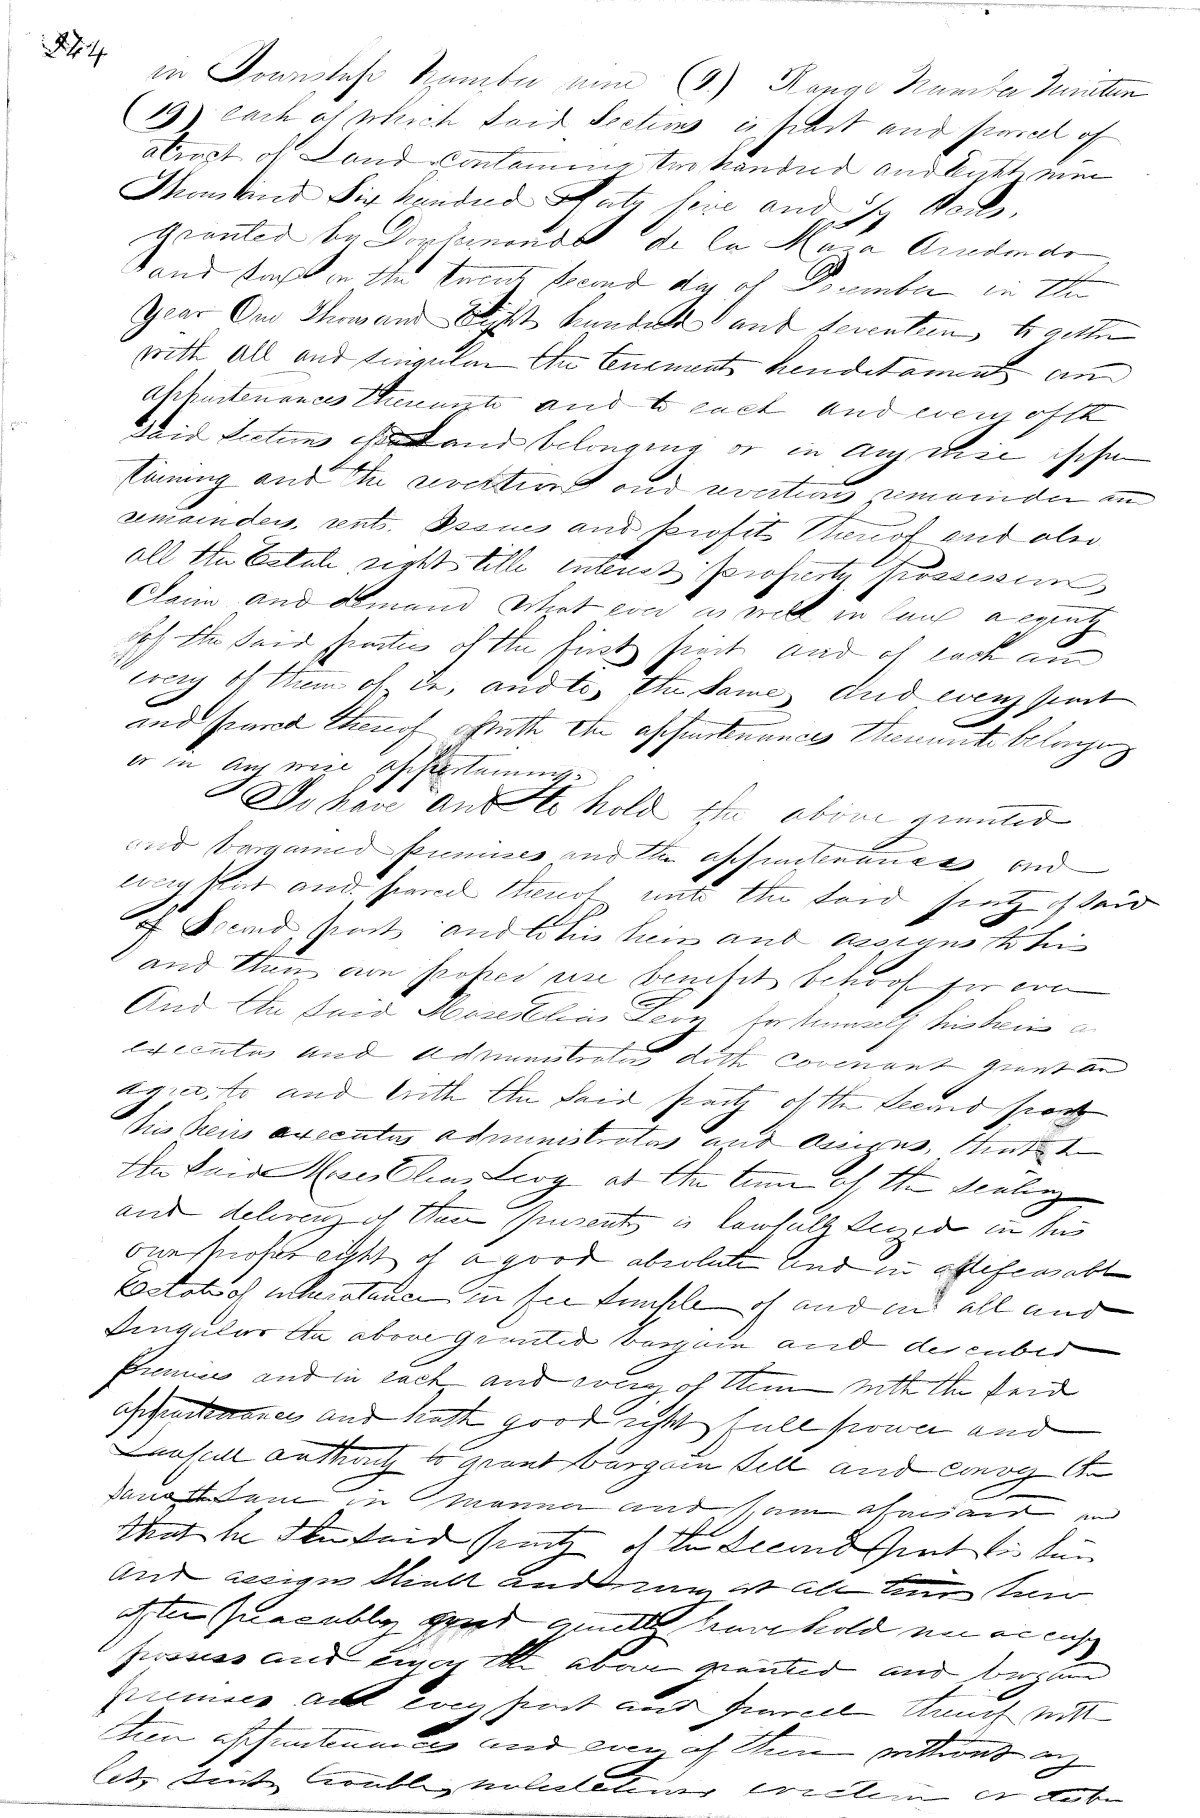 244
in Township Number nine (9) Range Number Nineteen
(19) each of which said Sections is part and parcel of
a tract of Land containing two hundred and Eighty nine
Thousand Six hundred Forty five and 5/7 Acres,
granted by Don Fernando de la Maza Arredondo
and Son on the twenty second day of December in the
Year One Thousand Eight hundred and seventeen, together
with all and singular the tenements hereditaments and
appurtenances thereunto and to each and every of the
said Sections of Land belonging or in any wise apper
taining and the revertion and revertions remainder and
remainders, rents, Issues and profits thereof and also
all the Estate right title interest property possession,
Claim and demand what ever as well in law as equity
of the said parties of the first part and of each and
every of them of, in, and to, the same, and every part
and parcel thereof with the appurtenances thereunto belonging
or in any wise appertaining.
To have and to hold the above granted
and bargained premises and the appurtenances and
every part and parcel thereof unto the said party of said
of Second part, and to his heirs and assigns to his
and their own proper use benefit behoof for ever
And the said Moses Elias Levy for himself his heirs
executors and administrators doth covenant grant and
agree, to and with the said party of the second part
his heirs executors administrators and assigns, that he
the said Moses Elias Levy at the time of the sealing
and delivery of these presents is lawfully seized in his
own proper right of a good absolute and in defeasable
Estate of inheratance in fee simple of and in all and
Singular the above granted bargain and described
premises and in each and every of them with the said
appurtenances and hath good right full power and
Lawfull authority to grant bargain sell and convey the
same in manner and form aforesaid and
that he the said party of the second part his heirs
and assigns shall and may at all times here
after peacably and quietly have hold use occupy
possess and enjoy the above granted and bargain
premises and every part and parcell thereof with
their appurtenances and every of them without any
let, suit, trouble, molestation, eviction or distur